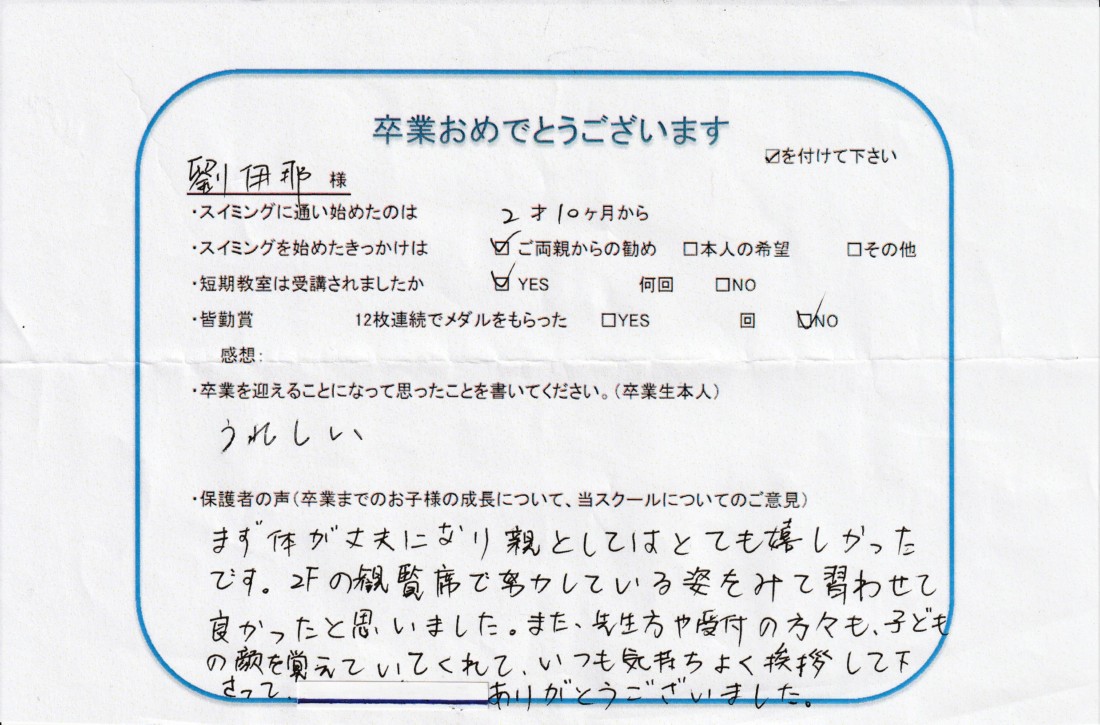 卒業おめでとうございます
☑を付けて下さい
劉伊耶 様
・スイミングに通い始めたのは 2才10ヶ月から
・スイミングを始めたきっかけは ☑ご両親からの勧め □本人の希望 □その他
・短期教室は受講されましたか ☑YES 何回 □NO
・皆勤賞 12枚連続でメダルをもらった □YES 回 ☑NO
感想:
・卒業を迎えることになって思ったことを書いてください。(卒業生本人)
うれしい
・保護者の声(卒業までのお子様の成長について、当スクールについてのご意見)
まず体が丈夫になり親としてはとても嬉しかった
です。2Fの観覧席で努力している姿をみて習わせて
良かったと思いました。また、先生方や受付の方々も、子ども
の顔を覚えていてくれて、いつも気持ちよく挨拶して下
さって、ありがとうございました。